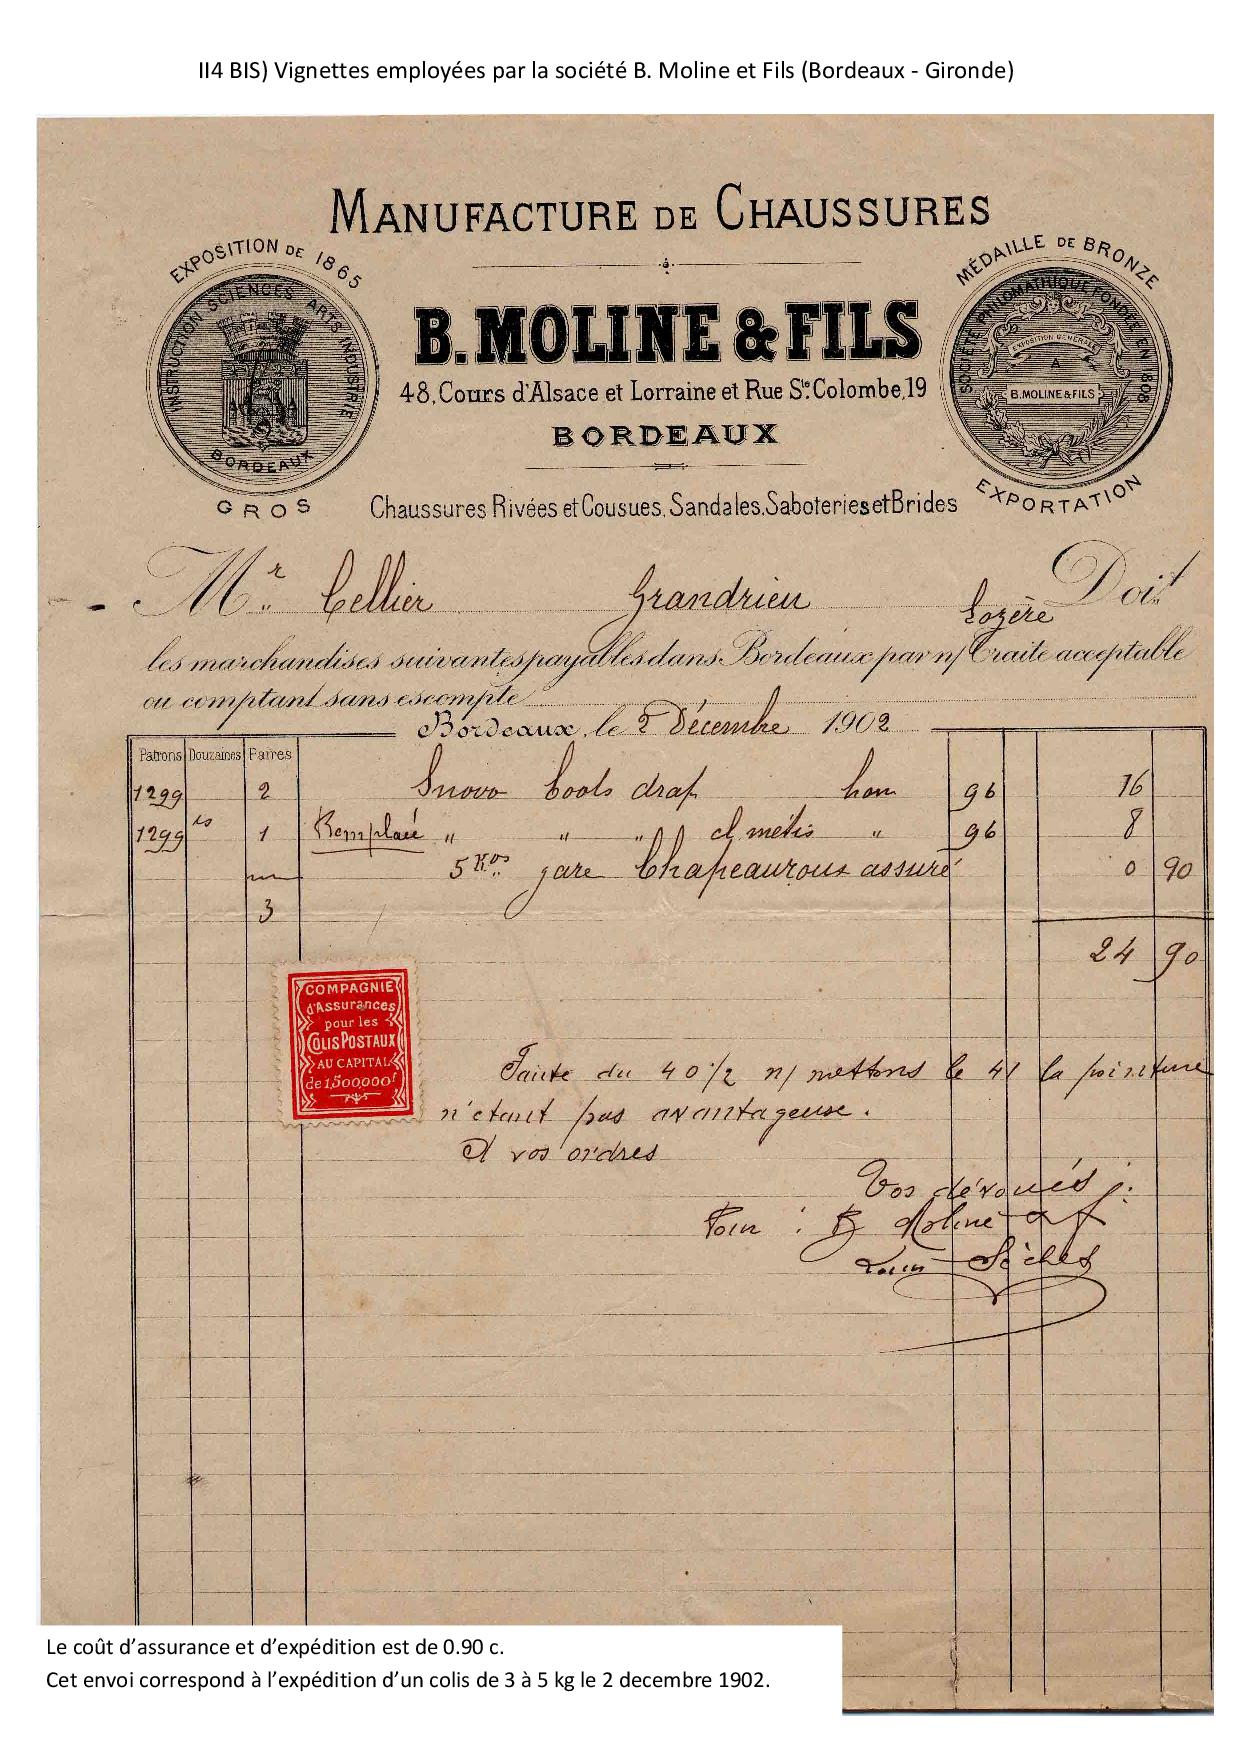 II4 BIS) Vignettes employées par la société B. Moline et Fils (Bordeaux - Gironde)
MANUFACTURE DE CHAUSSURES
EXPOSITION DE 1865
INSTRUCTION SCIENCES ARTS INDUSTRIE
BORDEAUX
GROS
MÉDAILLE DE BRONZE
SOCIÉTÉ PHILOMATHIQUE FONDÉE EN 1808
EXPOSITION GÉNÉRALE
A
B. MOLINE & FILS
EXPORTATION
B. MOLINE & FILS
48, Cours d'Alsace et Lorraine et Rue Ste Colombe, 19
BORDEAUX
Chaussures Rivées et Cousues, Sandales, Saboteries et Brides
Mr Cellier Grandrieu Lozère Doit
les marchandises suivantes payables dans Bordeaux par n/ Traite acceptable
ou comptant sans escompte
Bordeaux, le 2 Décembre 1902
Patrons Douzaines Paires
1299 2 Snow boots drap hom 96 16
1299 bis 1 Remplacé " " " cl métis " 96 8
5 Kos gare Chapeauroux assuré 0 90
3
24 90
COMPAGNIE
d'Assurances
pour les
COLIS POSTAUX
AU CAPITAL
de 1.500.000f
Faute du 40 1/2 n/ mettons le 41 la pointure
n'étant pas avantageuse.
A vos ordres
Vos dévoués
Pour : B Moline et f
Louis Sèches
Le coût d'assurance et d'expédition est de 0.90 c.
Cet envoi correspond à l'expédition d'un colis de 3 à 5 kg le 2 decembre 1902.